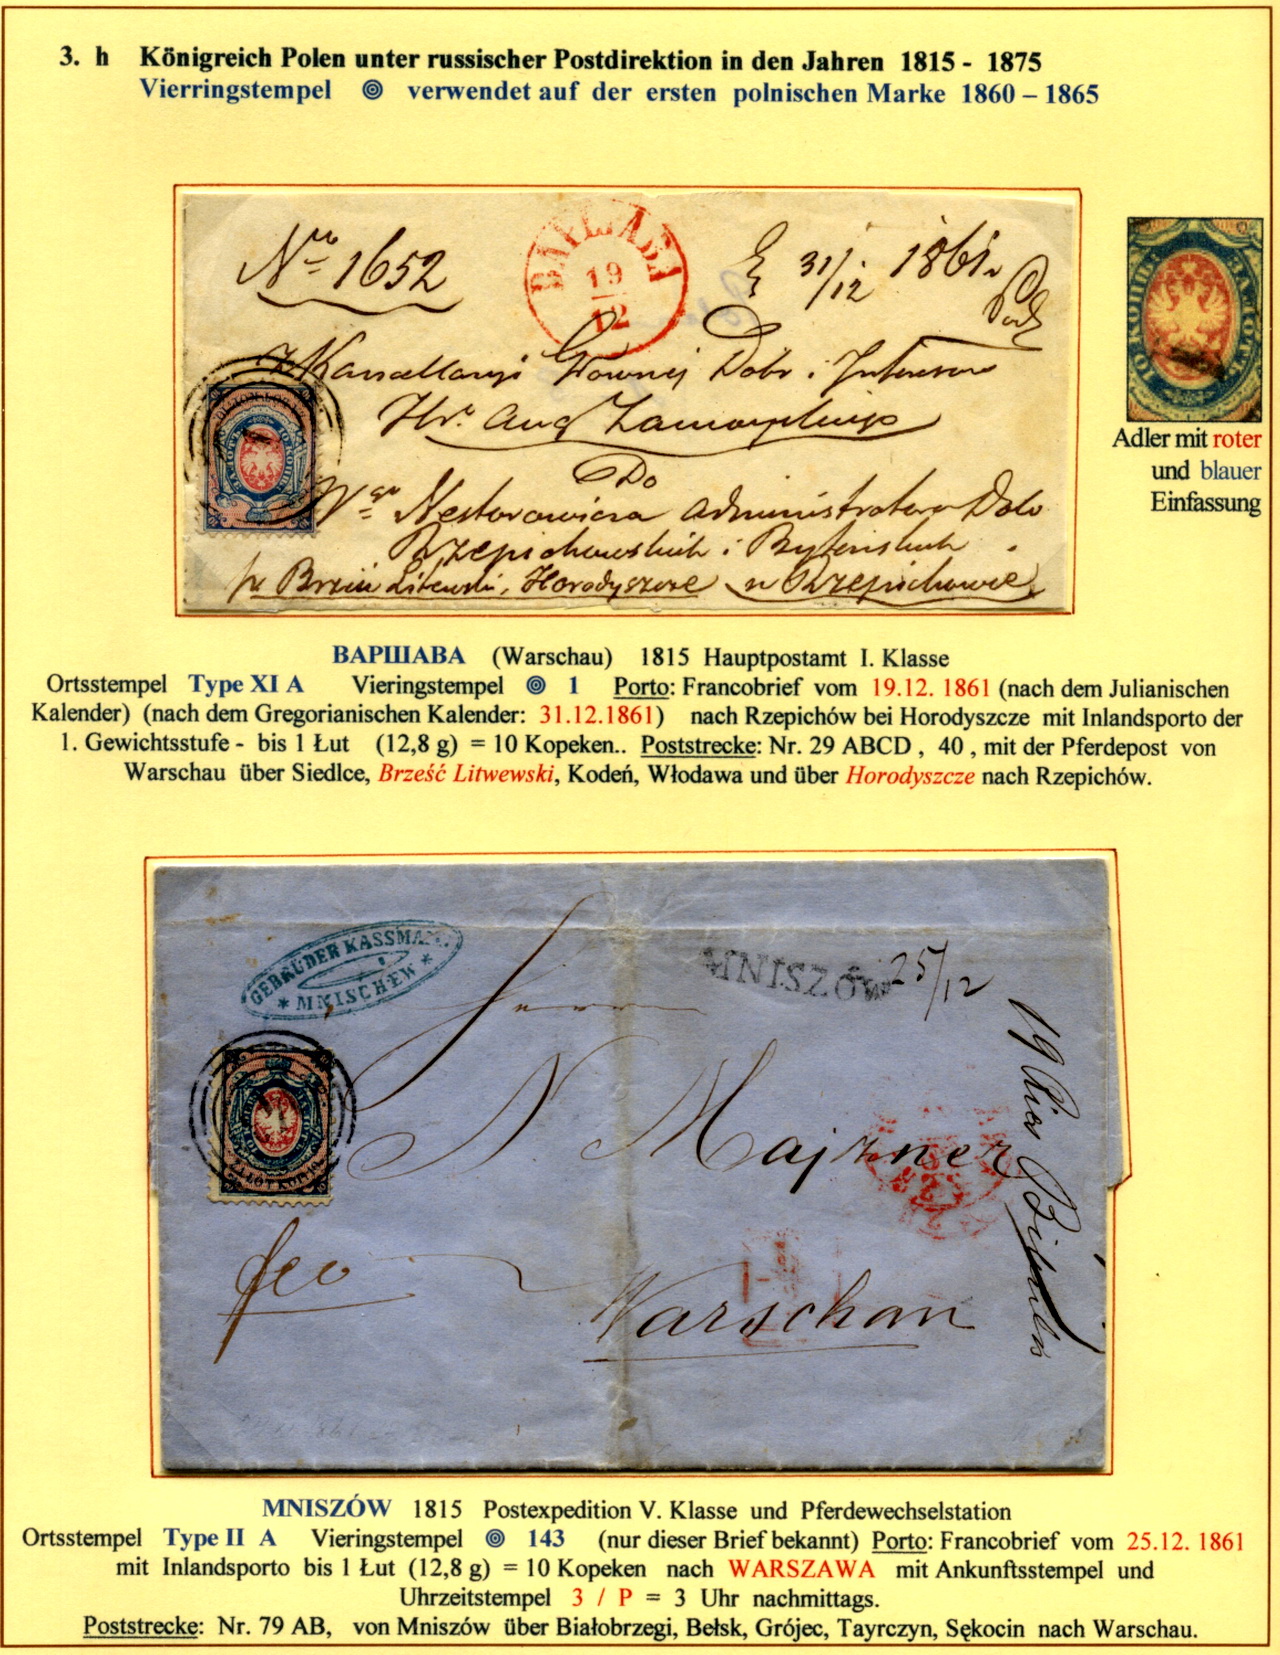 3. h Königreich Polen unter russischer Postdirektion in den Jahren 1815 - 1875
Vierringstempel verwendet auf der ersten polnischen Marke 1860 – 1865
Nro 1652
ВАРШАВА
19
12
31/12 1861
z Kancellaryi Głownej Dobr i Interesow
Hr. Aug Zamoyskiego
Do
Nestorowicza Administratora Dobr
Rzepichowskich i Bytenskich
w Rzepichowie
Adler mit roter
und blauer
Einfassung
ВАРШАВА (Warschau) 1815 Hauptpostamt I. Klasse
Ortsstempel Type XI A Vieringstempel 1 Porto: Francobrief vom 19.12. 1861 (nach dem Julianischen
Kalender) (nach dem Gregorianischen Kalender: 31.12.1861) nach Rzepichów bei Horodyszcze mit Inlandsporto der
1. Gewichtsstufe - bis 1 Łut (12,8 g) = 10 Kopeken.. Poststrecke: Nr. 29 ABCD , 40 , mit der Pferdepost von
Warschau über Siedlce, Brześć Litwewski, Kodeń, Włodawa und über Horodyszcze nach Rzepichów.
GEBRÜDER KASSMAN
* MNISCHEW *
MNISZÓW
25/12
N. Majzner
fco
Warschau
MNISZÓW 1815 Postexpedition V. Klasse und Pferdewechselstation
Ortsstempel Type II A Vieringstempel 143 (nur dieser Brief bekannt) Porto: Francobrief vom 25.12. 1861
mit Inlandsporto bis 1 Łut (12,8 g) = 10 Kopeken nach WARSZAWA mit Ankunftsstempel und
Uhrzeitstempel 3 / P = 3 Uhr nachmittags.
Poststrecke: Nr. 79 AB, von Mniszów über Białobrzegi, Bełsk, Grójec, Tayrczyn, Sękocin nach Warschau.